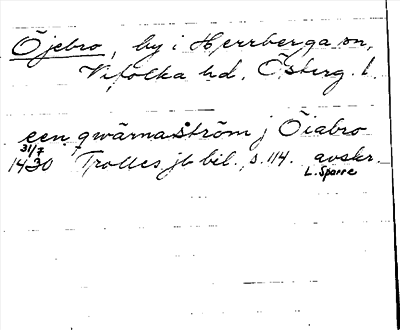 Öjebro, by i Herrberga sn,
Vifolka hd, Österg. l.
een qwärnaström j Öiabro
31/7 1430 Trolles jb bil., s. 114. avskr.
L. Sparre